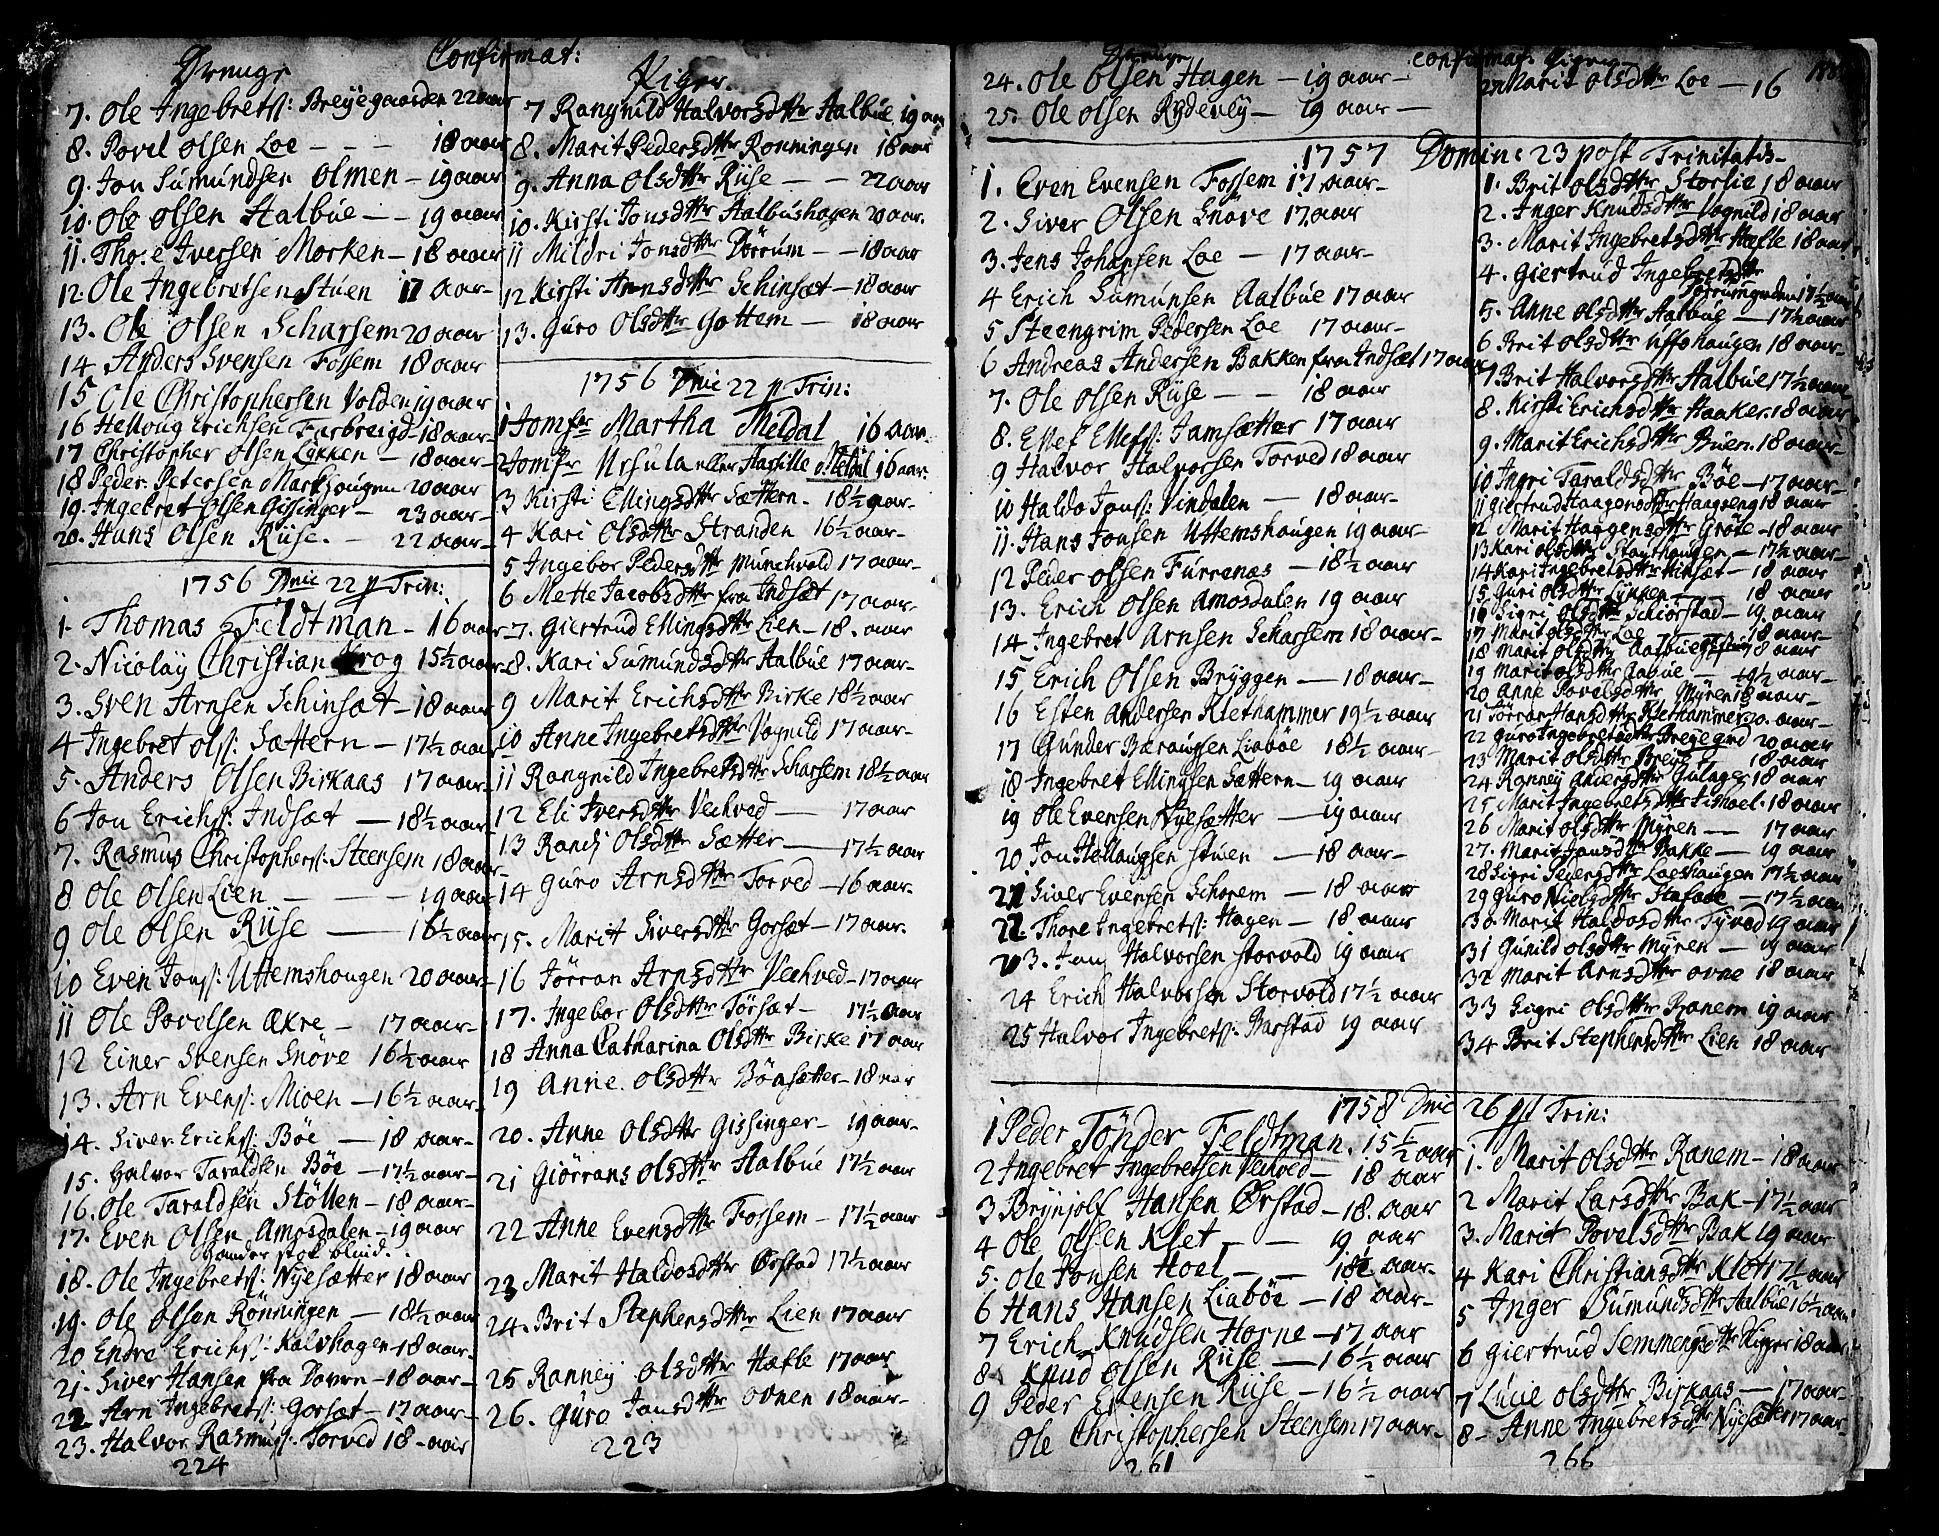 Confirmat:
Drenge
7. Ole Ingebretss: Breijegaarden 22 aar
8. Povel Olsen Loe - - - 18 aar
9. Jon Sumundsen Olmen - 19 aar
10. Ole Olsen Aalbue - - 19 aar
11. Thore Iversen Morken - 18 aar
12. Ole Ingebretsen Stuen 17 aar
13. Ole Olsen Scharsem 20 aar
14 Anders Svensen Fossem 18 aar
15 Ole Christophersen Volden 19 aar
16 Helloug Erichsen Farbreigd - 18 aar
17 Christopher Olsen Lykken - 18 aar
18 Peder Petersen Markjougen 20 aar
19. Ingebret Olsen Gissinger - 23 aar
20. Hans Olsen Riise. - 22 aar
1756 Dnic 22 p Trin:
1. Thomas Feldtman - 16 aar
2. Nicolaÿ Christian Krog 15½ aar
3. Sven Arnsen Schinsæt - 18 aar
4 Ingebret Olss: Sættern - 17½ aar
5. Anders Olsen Birkaas 17 aar
6 Jon Erichss: Indsæt - 18½ aar
7. Rasmus Christopherss: Steensem 18 aar
8 Ole Olsen Lien - - - 19 aar
9 Ole Olsen Riise - 16½ aar
10 Even Jonss: Uttemshougen 20 aar
11 Ole Povelsen Ækre - 17 aar
12 Einer Svensen Snöve 16½ aar
13. Arn Evenss: Mioen - 16½ aar
14. Siver Erichss: Böe - 18 aar
15. Halvor Taraldsen Böe - 17½ aar
16. Ole Taraldsen Stöllen - 18 aar
17. Even Olsen Amosdalen - 19 aar
18. Ole Ingebretss: Nÿesætter 18 aar
19. Ole Olsen Rönningen - 18½ aar
20 Endre Erichss: Kalvhagen 18 aar
21. Siver Hansen fra Dovre - 18 aar
22 Arn Ingebretss: Gorsæt - 17 aar
23. Halvor Rasmuss: Torved 18 - aar
224
Piger.
7 Rangnild Halvorsdttr Aalbue 19 aar
8. Marit Pedersdttr Ronningen 18 aar
9. Anna Olsdttr Riise - - 22 aar
10. Kirsti Jonsdttr Aalbushagen 20 aar.
11 Mildri Jonsdttr Dörrum - - 18 aar
12 Kirsti Arnsdttr Schinsæt - 18 aar
13. Guro Olsdttr Gottem - 18 aar
1756 Dnic 22 p Trin:
1 Jomfr Martha Meldal 16 aar
2 Jomfr Ursula eller Hasille Meldal 16 aar.
3 Kirsti Ellingsdttr Sættern. - 18½ aar
4 Kari Olsdttr Stranden 16½ aar
5 Ingebor Pedersdttr Munchvold 17 aar
6 Mette Jacobsdttr fra Indsæt 17 aar
7. Giertrud Ellingsdttr Lien - 18. aar
8. Kari Sumundsdttr Aalbue 17 aar
9 Marit Erichsdttr Birke 18½ aar
10 Anne Ingebretsdttr Vognild 17 aar
11 Rangnild Ingebretsdttr Scharsem 18½ aar
12 Eli Iversdttr Veehved - 17 aar
13 Randj Olsdttr Sætter - 17½ aar
14 Guro Arnsdttr Torved - 16 aar
15. Marit Siversdttr Gorsæt - 17 aar.
16 Jörran Arnsdttr Veehved - 17 aar
17. Ingebor Olsdttr Törsæt - 17½ aar
18 Anna Catharina Olsdttr Birke 17 aar
19 Anne. Olsdttr Bönsætter - 18 aar
20. Anne Olsdttr Gissinger - 19 aar
21 Giörrans Olsdttr Aalbue 17½ aar
22 Anne Evensdttr Fossem - 17½ aar
23 Marit Haldosdttr Ørstad 17½ aar
24. Brit Stephensdttr Lien 17 aar
25 Ranneÿ Olsdttr Hæfle 17 aar
26. Guro Jonsdttr Ovnen 18 aar
223
Drenge
24. Ole Olsen Hagen - 19 aar
25. Ole Olsen Rydeneÿ - 19 aar
Confirmat. Piger
27 Marit Olsdttr Loe - 16
1757 Domin: 23 post Trinitatis
1. Even Evensen Fossem 17 aar
2. Siver Olsen Snöve 17 aar
3. Jens Johansen Loe - 17 aar
4 Erich Sumunsen Aalbue 17 aar
5 Steengrim Pedersen Loe 17 aar
6 Andreas Andersen Bakken fra Indsæt 17 aar
7. Ole Olsen Riise - - 18 aar
8. Ellef Ellefss: Jamsætter 17 aar
9 Halvor Halvorsen Torved 18 aar
10 Haldo Jonss: Vindalen - 18 aar
11. Hans Jonsen Uttemshaugen 19 aar
12 Peder Olsen Furrenas - 18½ aar
13. Erich Olsen Amosdalen 19 aar
14 Ingebret Arnsen Scharsem 18 aar
15 Erich Olsen Brÿggen - 18 aar
16 Esten Andersen Klethammer 19½ aar
17 Gunder Baraugsen Liaböe 18½ aar
18 Ingebret Ellingsen Sættern - 19 aar
19 Ole Evensen Nÿesætter - 19 aar
20. Jon Hellaugsen Stuen - 18 aar
21 Siver Evensen Schorem - 18 aar
22. Thore Ingebretss: Hagen - 18 aar
23. Jon Halvorsen Storvold 19 aar
24 Erich Halvorsen Storvold 17½ aar
25 Halvor Ingebretss: Barstad 19 aar
1. Brit Olsdttr Storlie 18 aar
2. Inger Knudsdttr Vognild 18 aar
3. Marit Ingebretsdttr Hæfle 18 aar
4. Giertrud Ingebretsdttr
Dörrumgarden 17½ aar
5. Anne Olsdttr Aalbue - 17½ aar
6 Brit Olsdttr Uffshaugen 18 aar
7 Brit Halvorsdttr Aalbue 17½ aar
8. Kirsti Erichsdttr Haaker 18 aar
9. Marit Erichsdttr Buen. 18 aar
10 Ingri Taraldsdttr Böe - 17 aar
11 Giertrud Haagensdttr Haagseng 18 aar
12 Marit Haagensdttr Grote - 18 aar
13 Kari Olsdttr Stoythaugen - 17½ aar
14 Kari Ingebretsdttr Hinsæt - 18 aar
15 Guri Olsdttr Lykken - 18 aar
16 Sigri Olsdttr Schiörstad - 19 aar
17 Marit Olsdttr Loe - 18 aar
18 Marit Olsdttr Aalbue 18 aar
19 Marit Olsdttr Aabue - 19½ aar
20 Anne Povelsdttr Mÿren 18 aar
21 Jörran Hansdttr Klethammer 20. aar
22 Guro Ingebretsdttr Breyegrd 20 aar
23 Marit Olsdttr Breye 18 aar
24 Ranneÿ Andersdttr Gulager 18 aar
25 Marit Ingebretsdttr Limoel. 18 aar
26 Marit Olsdttr Mÿren - 17 aar
27. Marit Jonsdttr Bakke - 19 aar
28 Sigri Pedersdttr Loeshaugen 17½ aar
29 Guro Nielsdttr Stafaae - 17½ aar
30. Marit Haldosdttr Tyved 19 aar
31 Gunild Olsdttr Mÿren - 19 aar
32 Marit Arnsdttr Ovne 18 aar
33 Sigri Olsdttr Ranem 19 aar
34 Brit Stephensdttr Lien 18 aar
1758 Dnic 26 pst Trin:
1 Peder Tönder Feldtman. 15½ aar
2 Ingebret Ingebretsen Veehved - 18 aar
3 Brÿnjolf Hansen Ørstad - 18. aar
4 Ole Olsen Klet - - 19 aar
5. Ole Jonsen Hoel - - 18½ aar
6 Hans Hansen Liaböe - 18 aar
7 Erich Knudsen Horne - 17 aar
8 Knud Olsen Riise - 16½ aar
9 Peder Evensen Riise - 16½ aar
Ole Christophersen Steensem 17 aar
261
1. Marit Olsdttr Ranem - 18 aar
2 Marit Larsdttr Bak - 17½ aar
3. Marit Povelsdttr Bak 19 aar
4 Kari Christiansdttr Klet 17½ aar
5 Inger Sumundsdttr Aalbue 16½ aar
6 Giertrud Semmengsdttr 18 aar
7 Lucie Olsdttr Birkaas - 17 aar
8 - Anne Ingebretsdttr Nÿesætter 17 aar
266